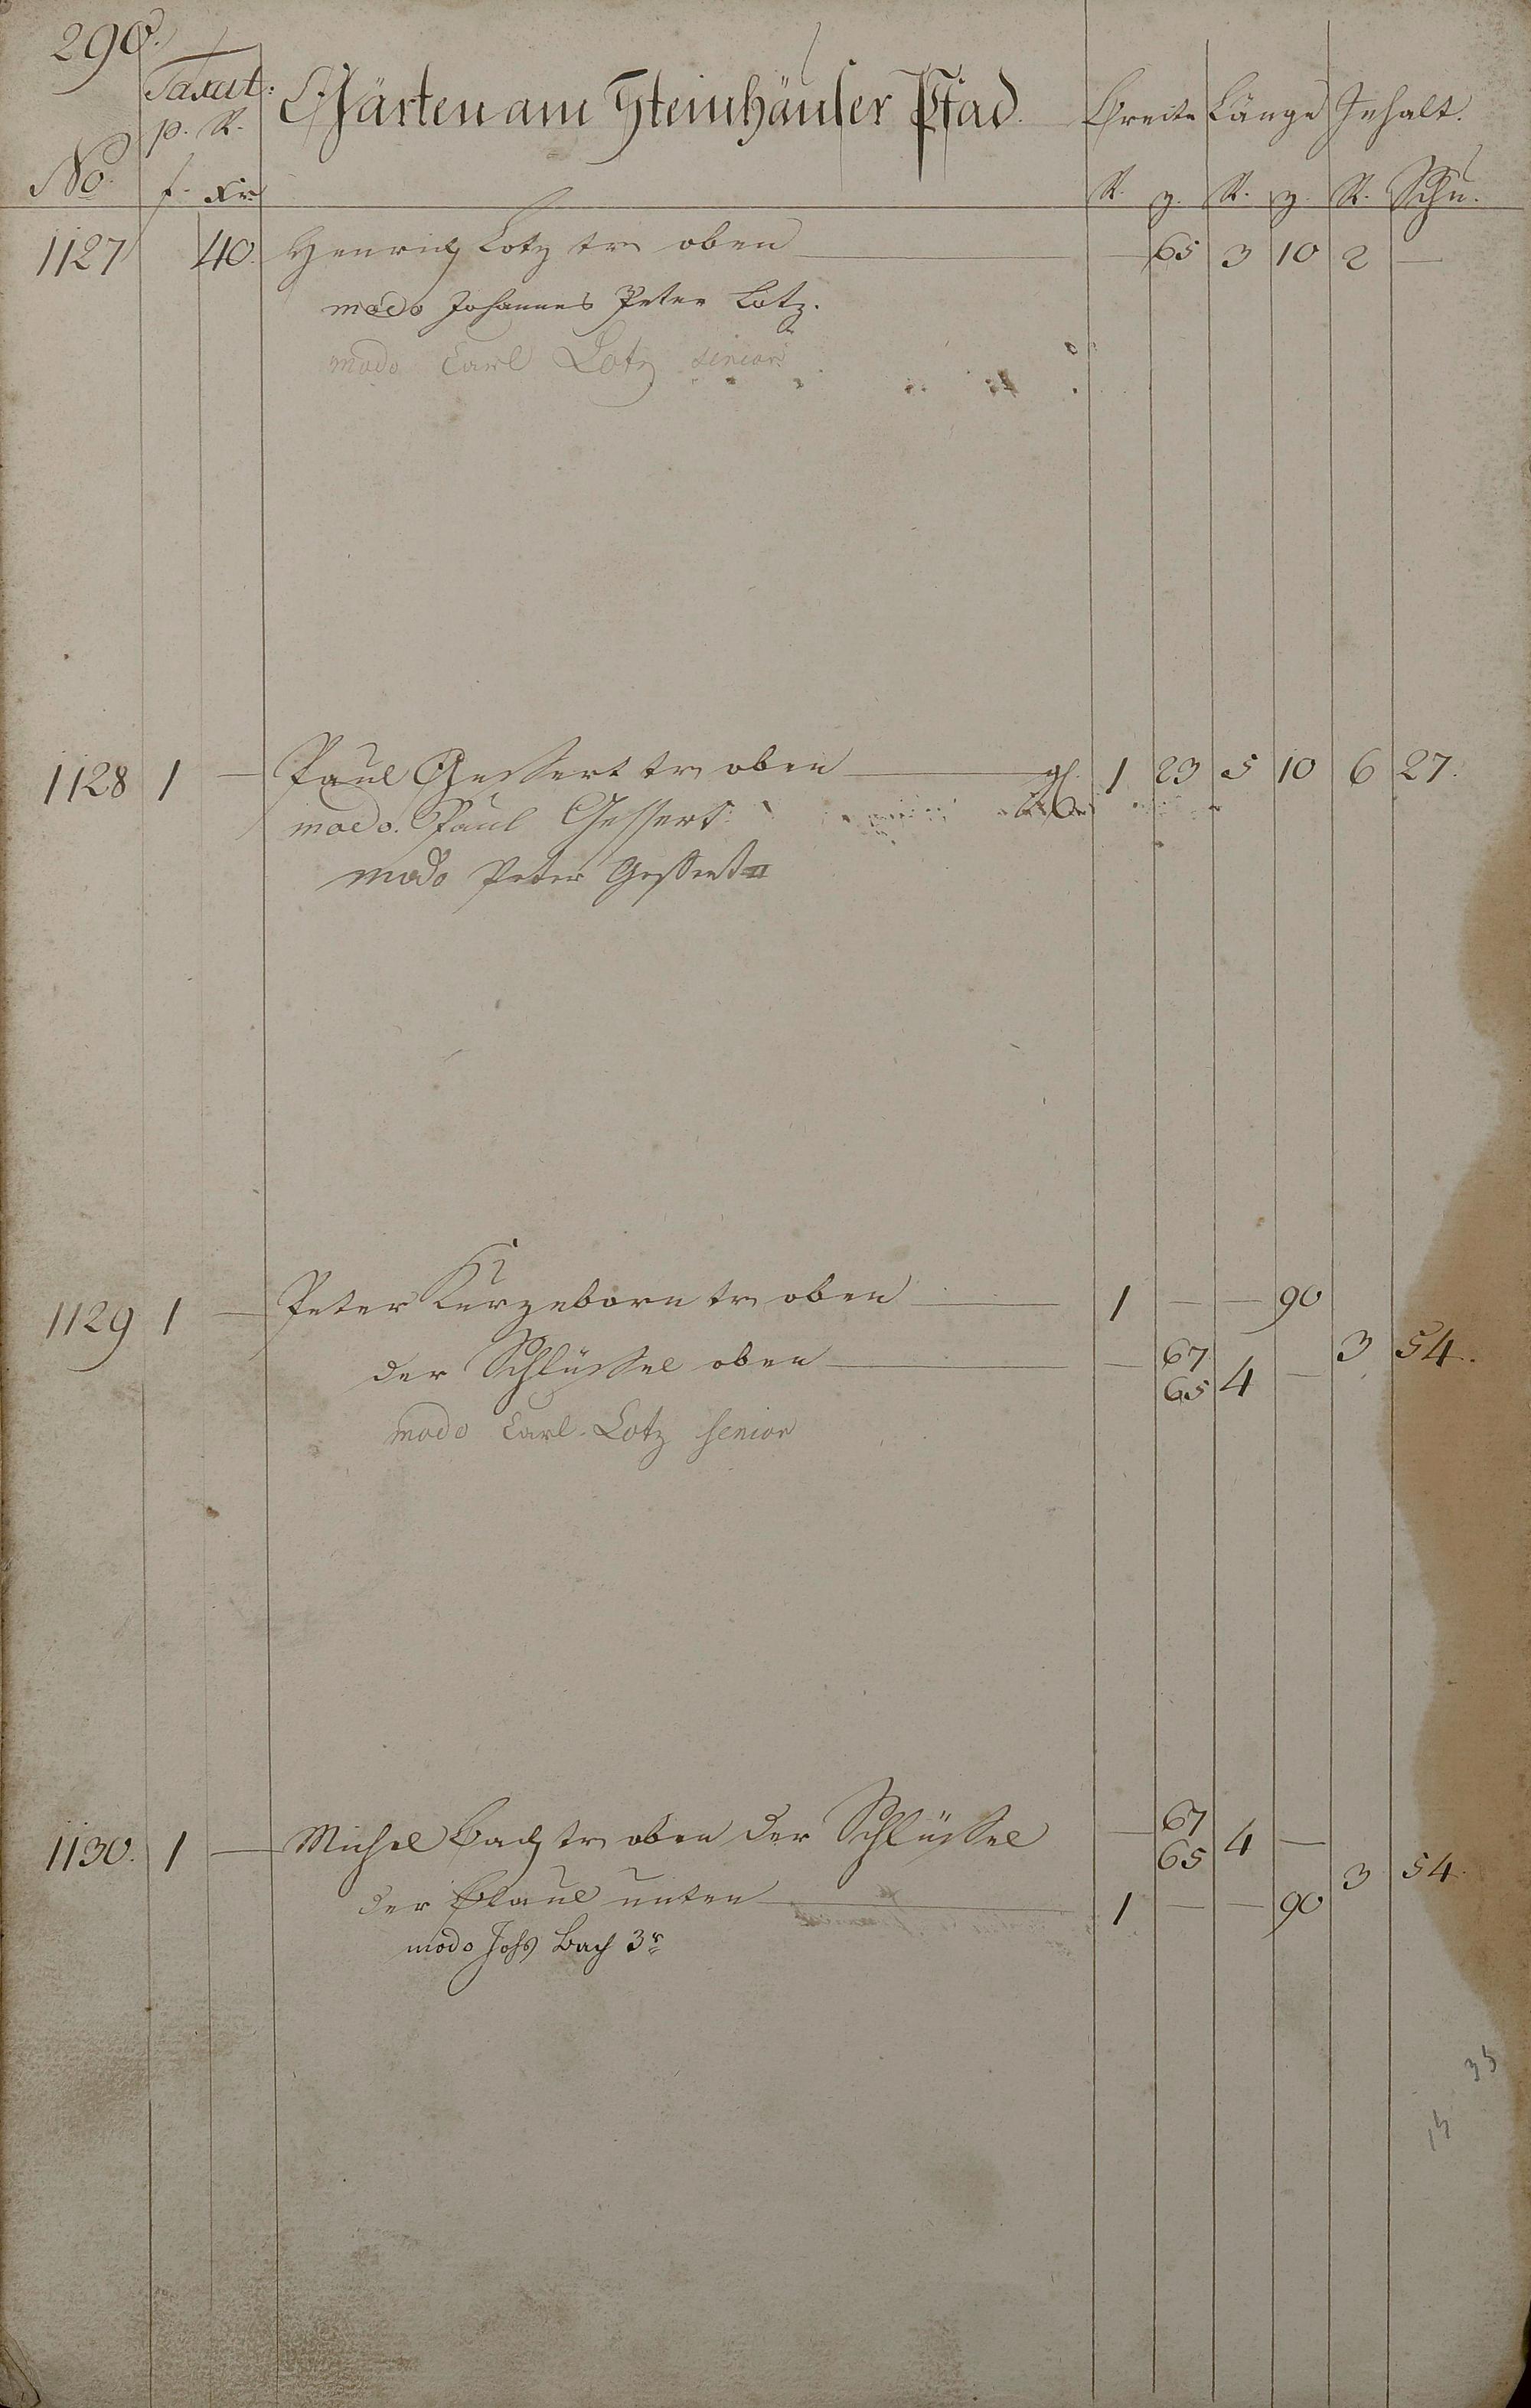 290.
Taxat: Gärten am Steinhäuser Pfad. Breite Länge Inhalt.
p. R.
No. f. Xr. R. z. R. z. R. Schu.
1127 40. Henrich Lotz tr oben — — 65 3 10 2 —
modo Johannes Peter Lotz.
modo Carl Lotz senior
1128 1 — Paul Gessert tr oben — 1 23 5 10 6 27.
modo. Paul Gessert
modo Peter Gessert II
1129 1 — Peter Kurzeborn tr oben — 1 — — 90
der Schlüssel oben — — 67 65 4 — 3 54.
modo Carl Lotz senior
1130. 1 — Michel Bach tr oben der Schlüssel — 67 65 4 —
der Plaul unten — 1 — — 90 3 54.
modo Johs Bach 3r